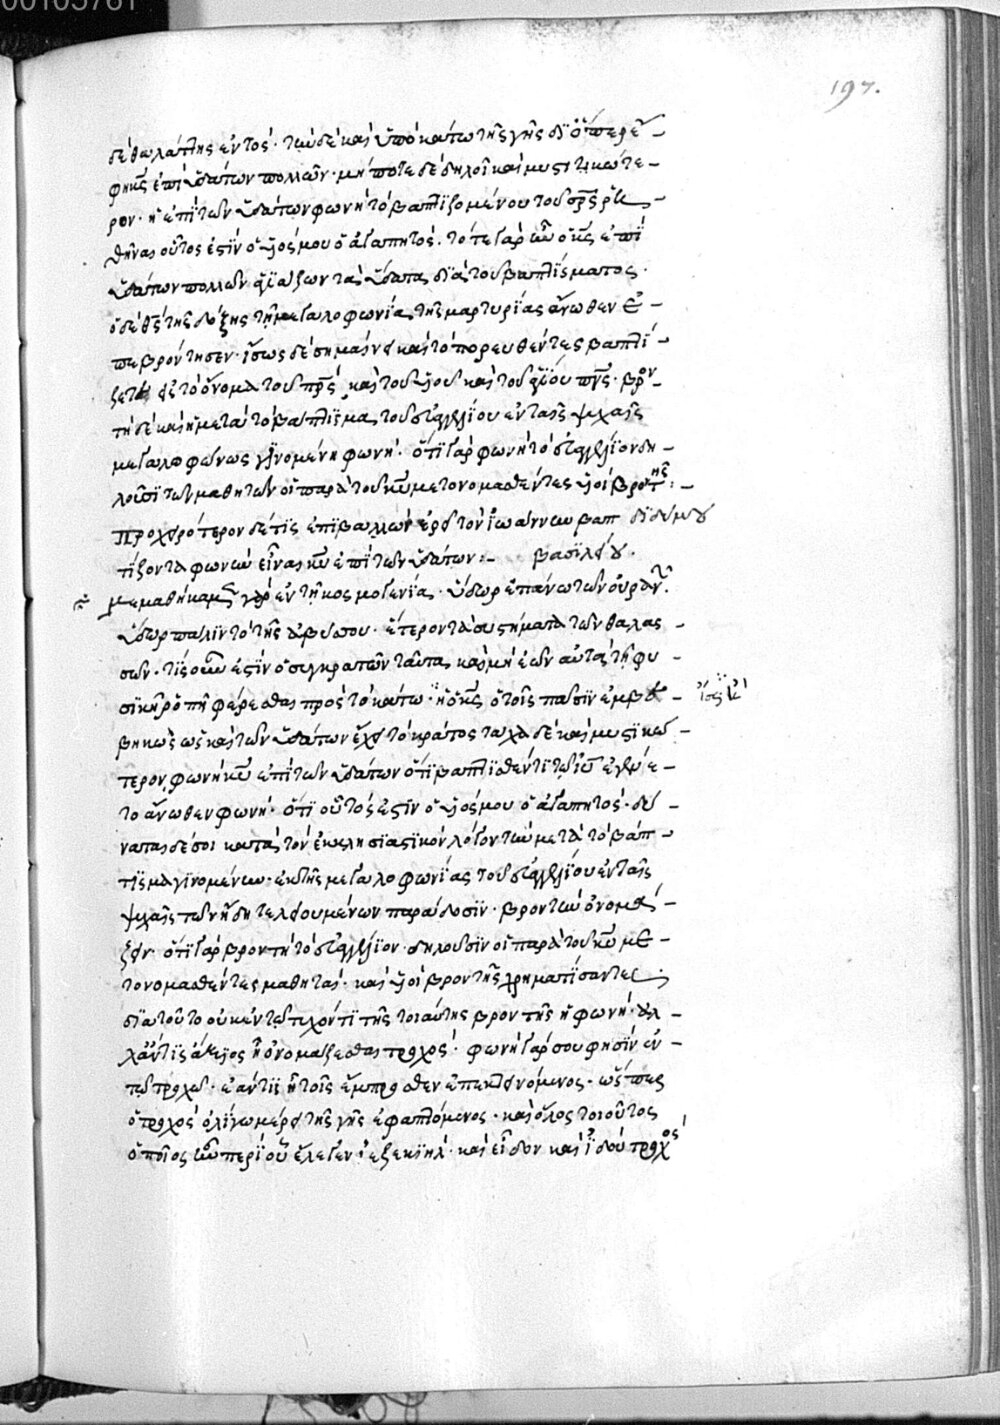 197.
δὲ θαλάττης ἐντός· τῶν δὲ καὶ ὑποκάτω τῆς γῆς δι' ὅπερ
ἐπὶ ὑδάτων πολλῶν· μήποτε δὲ δηλοῖ καὶ μυστικώτε-
ρον· ἡ ἐπὶ τῶν ὑδάτων φωνὴ τὸ βαπτιζομένου τοῦ σρς
οὗτός ἐστιν ὁ υἱός μου ὁ ἀγαπητός· τότε γὰρ ἦν ὁ κς ἐπὶ
ὑδάτων πολλῶν ἁγιάζων τὰ ὕδατα διὰ τοῦ βαπτίσματος·
ὁ δὲ θς τῆς δόξης τῇ μεγαλοφωνίᾳ τῆς μαρτυρίας ἄνωθεν ἐ-
πεβρόντησεν· ἴσως δὲ σημαίνει καὶ τὸ πορευθέντες βαπτί-
ζετε εἰς τὸ ὄνομα τοῦ πρς καὶ τοῦ υἱοῦ καὶ τοῦ ἁγίου πνς· βρον-
τὴ δὲ καὶ ἡ μετὰ τὸ βάπτισμα τοῦ εὐαγγελίου ἐν ταῖς ψυχαῖς
μεγαλοφώνως γινομένη φωνή· ὅτι γὰρ φωνὴ τὸ εὐαγγέλιον δη-
λοῦσι τῶν μαθητῶν οἱ παρὰ τοῦ κυ μετονομασθέντες υἱοὶ βροντῆς:-
προχειρότερον δέ τις ἐπιβαλλὼν ἐρεῖ τὸν ἰωάννην βαπ διδύμου
τίζοντα φωνὴν εἶναι κυ ἐπὶ τῶν ὑδάτων:- βασιλείου.
μεμαθήκαμεν γὰρ ἐν τῇ κοσμογενίᾳ· ὕδωρ ἐπάνω τῶν οὐρανῶν·
ὕδωρ πάλιν τὸ τῆς ἀβύσσου· ἕτερον τὰ συστήματα τῶν θαλασ-
σῶν· τίς οὖν ἐστιν ὁ συγκρατῶν ταῦτα καὶ μὴ ἐῶν αὐτὰ τῇ φυ-
σικῇ ῥοπῇ φέρεσθαι πρὸς τὸ κάτω· ἢ ὁ κς ὁ τοῖς πᾶσιν ἐμβε-
βηκὼς ὡς καὶ τῶν ὑδάτων ἔχει τὸ κράτος τάχα δὲ καὶ μυστικώ-
τερον, φωνὴ κυ ἐπὶ τῶν ὑδάτων ὅτι βαπτισθέντι τῷ ιυ ἐγένε-
το ἄνωθεν φωνή· ὅτι οὗτός ἐστιν ὁ υἱός μου ὁ ἀγαπητός· δύ-
ναται δέ σοι κατὰ τὸν ἐκκλησιαστικὸν λόγον τῶν μετὰ τὸ βάπ-
τισμα γινομένων· ἐκ τῆς μεγαλοφωνίας τοῦ εὐαγγελίου ἐν ταῖς
ψυχαῖς τῶν ἤδη τελειουμένων παράδοσιν· βροντὴν ὀνομά-
ζειν· ὅτι γὰρ βροντὴ τὸ εὐαγγέλιον· δηλοῦσιν οἱ παρὰ τοῦ κυ με-
τονομασθέντες μαθηταί· καὶ υἱοὶ βροντῆς χρηματίσαντες·
διὰ τοῦτο οὐκ ἐν τῷ τυχόντι τῆς τοιαύτης βροντῆς ἡ φωνή· ἀλ-
λ' ἄν τις ἄξιος ᾖ ὀνομάζεσθαι τροχός· φωνὴ γάρ σου φησὶν ἐν
τῷ τροχῷ· ἐάν τις ᾖ τοῖς ἔμπροσθεν ἐπεκτεινόμενος· ὥσπερ
ὁ τροχὸς ὀλίγῳ μέρει τῆς γῆς ἐφαπτόμενος· καὶ ὅλος τοιοῦτος
ὁποῖος ἦν περὶ οὗ ἔλεγεν ἰεζεκιήλ· καὶ εἶδον καὶ ἰδοὺ τροχὸς